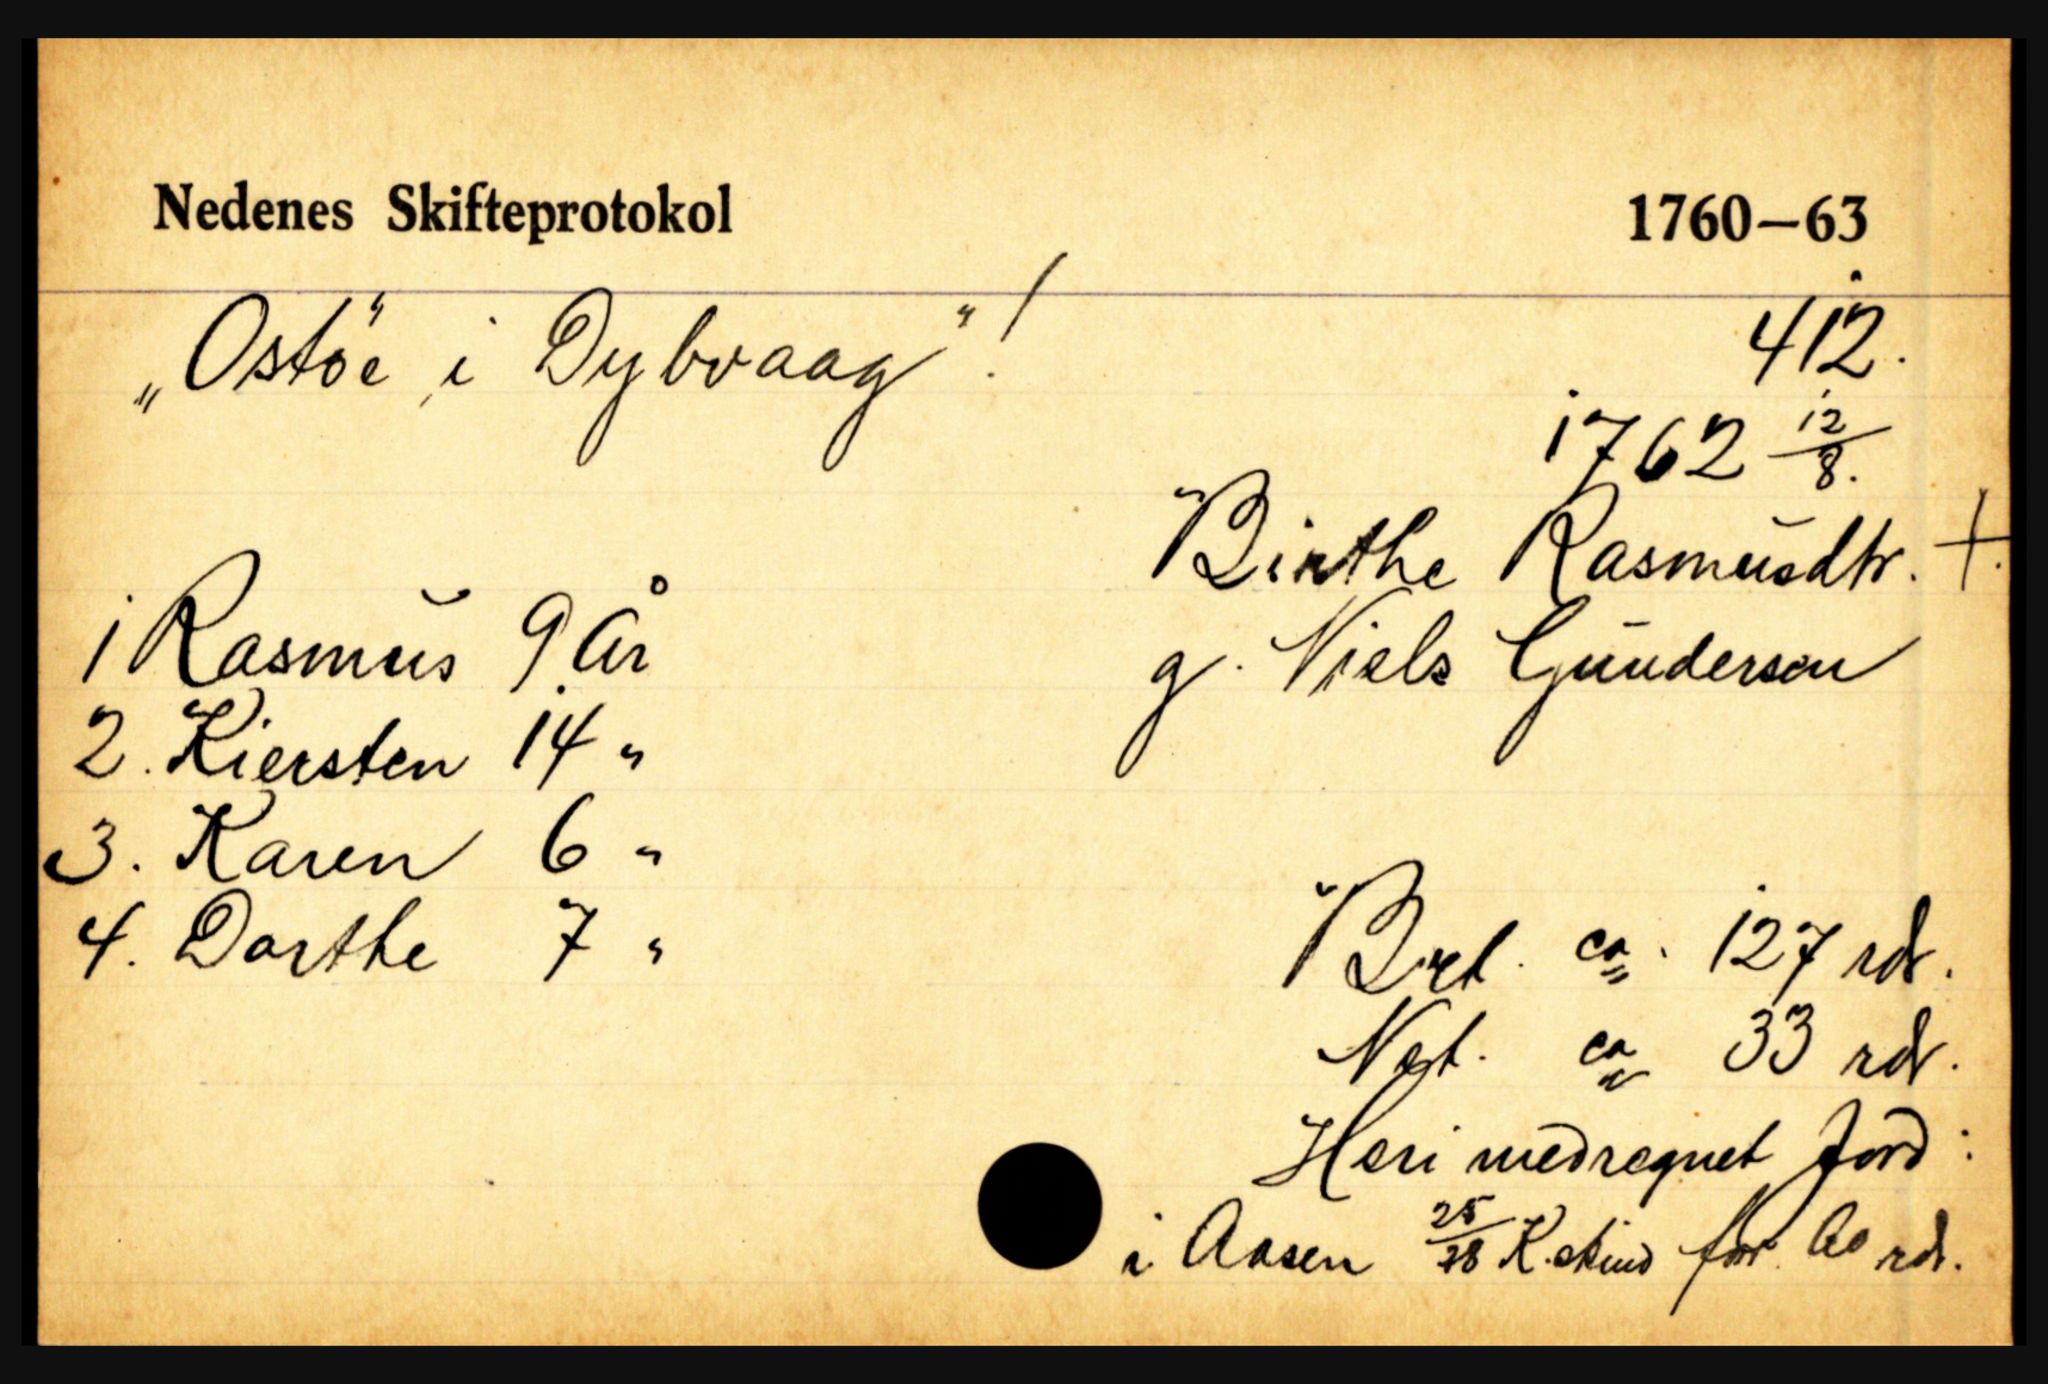 Nedenes Skifteprotokol 1760–63
„Ostöe i Dybvaag“!
412.
1762 12/8.
Birthe Rasmusdtr. +.
g. Niels Gunderson
1 Rasmus 9 År
2. Kiersten 14 "
3. Karen 6 "
4. Dorthe 7 "
Brt. ca. 127 rdr.
Net. ca 33 rdr.
Heri medregnet Jord:
i Aasen 25/28 K.skind for 60 rdr.